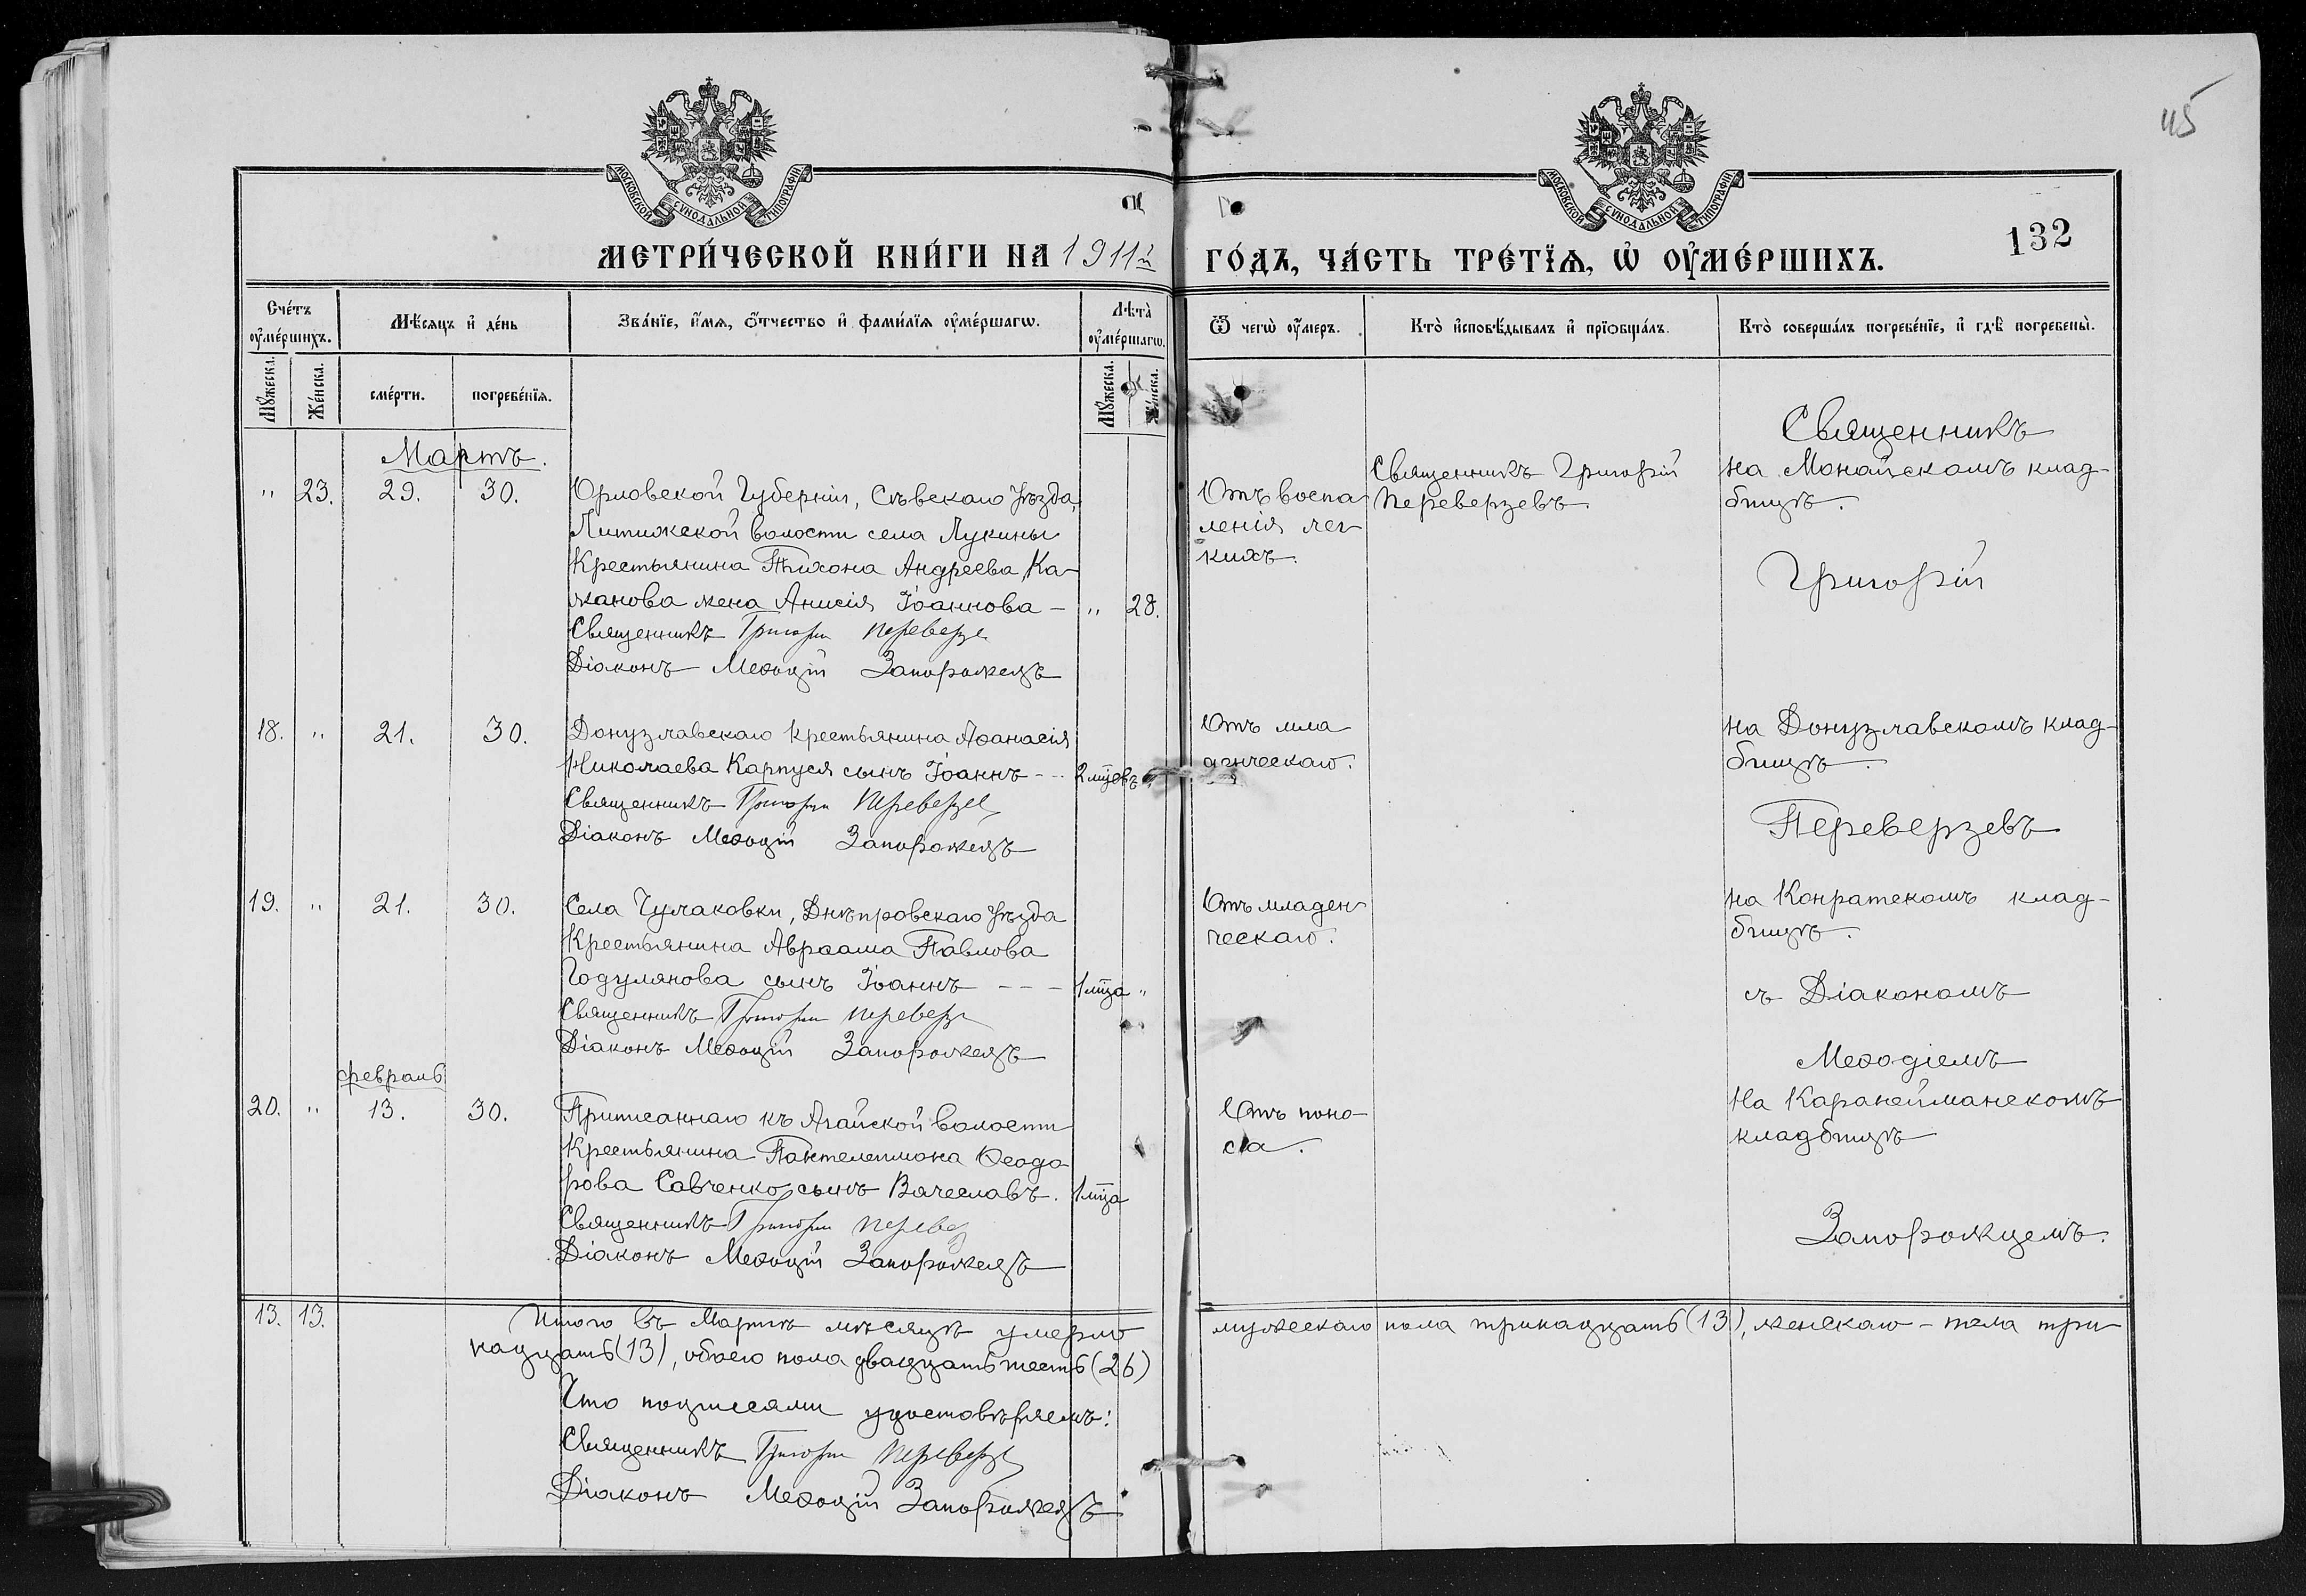 115
МОСКОВСКОЙ СѴНОДАЛЬНОЙ ТИПОГРАФІИ
МОСКОВСКОЙ СѴНОДАЛЬНОЙ ТИПОГРАФІИ
132
МЕТРИ́ЧЕСКОЙ КНИ́ГИ НА 1911й ГО́ДЪ, ЧА́СТЬ ТРЕ́ТЇѦ, Ѡ҆ ОУ҆МЕ́РШИХЪ.
Сче́тъ оу҆ме́ршихъ.
Мѣ́сяцъ и҆ де́нь
Зва́нїе, и҆́мѧ, ѻ҆́тчество и҆ фами́лїѧ оу҆ме́ршагѡ.
Лѣ́та оу҆ме́ршагѡ.
Ѿ чегѡ̀ оу҆́меръ.
Кто̀ и҆сповѣ́дывалъ и҆ прїѡбща́лъ.
Кто̀ соверша́лъ погребе́нїе, и҆ гдѣ̀ погребены̀.
Мꙋ́жеска.
Же́нска.
сме́рти.
погребе́нїѧ.
Мꙋ́жеска.
Же́нска.
Мартъ.
" 23. 29. 30.
Орловской Губерніи, Сѣвскаго уѣзда,
Литижской волости села Лукины
Крестьянина Тихона Андреева Ка-
жанова жена Анисія Іоаннова – " 28.
Священникъ Григорій Переверзе
Діаконъ Меѳодій Запорожецъ
Отъ воспа
ленія лег
кихъ.
Священникъ Григорій
Переверзевъ.
Священникъ
на Монайскомъ клад-
бищѣ.
Григорій
18. " 21. 30.
Донузлавскаго крестьянина Аѳанасія
Николаева Карпуся сынъ Іоаннъ – – 2 мцовъ "
Священникъ Григорій Переверзе
Діаконъ Меѳодій Запорожецъ
Отъ мла
денческаго.
на Донузлавскомъ клад-
бищѣ.
Переверзевъ
19. " 21. 30.
Села Чулаковки, Днѣпровскаго уѣзда
Крестьянина Авраама Павлова
Годулянова сынъ Іоаннъ – – – 1 мца "
Священникъ Григорій Переверзе
Діаконъ Меѳодій Запорожецъ
Отъ младен
ческаго.
на Конратскомъ клад-
бищѣ.
съ Діакономъ
Меѳодіемъ
февраль
20. " 13. 30.
Приписаннаго къ Агайской волости
Крестьянина Пантелеимона Ѳеодо
рова Савченко сынъ Вячеславъ. 1 мца
Священникъ Григорій Перевез
Діаконъ Меѳодій Запорожецъ
Отъ поно-
са.
На Каранейманскомъ
кладбищѣ
Запорожцемъ.
13. 13.
Итого въ Мартѣ мѣсяцѣ умерло мужескаго пола тринадцать (13), женскаго – пола три
надцать (13), обоего пола двадцать шесть (26)
Что подписями удостовѣряемъ:
Священникъ Григорій Переверзе
Діаконъ Меѳодій Запорожецъ